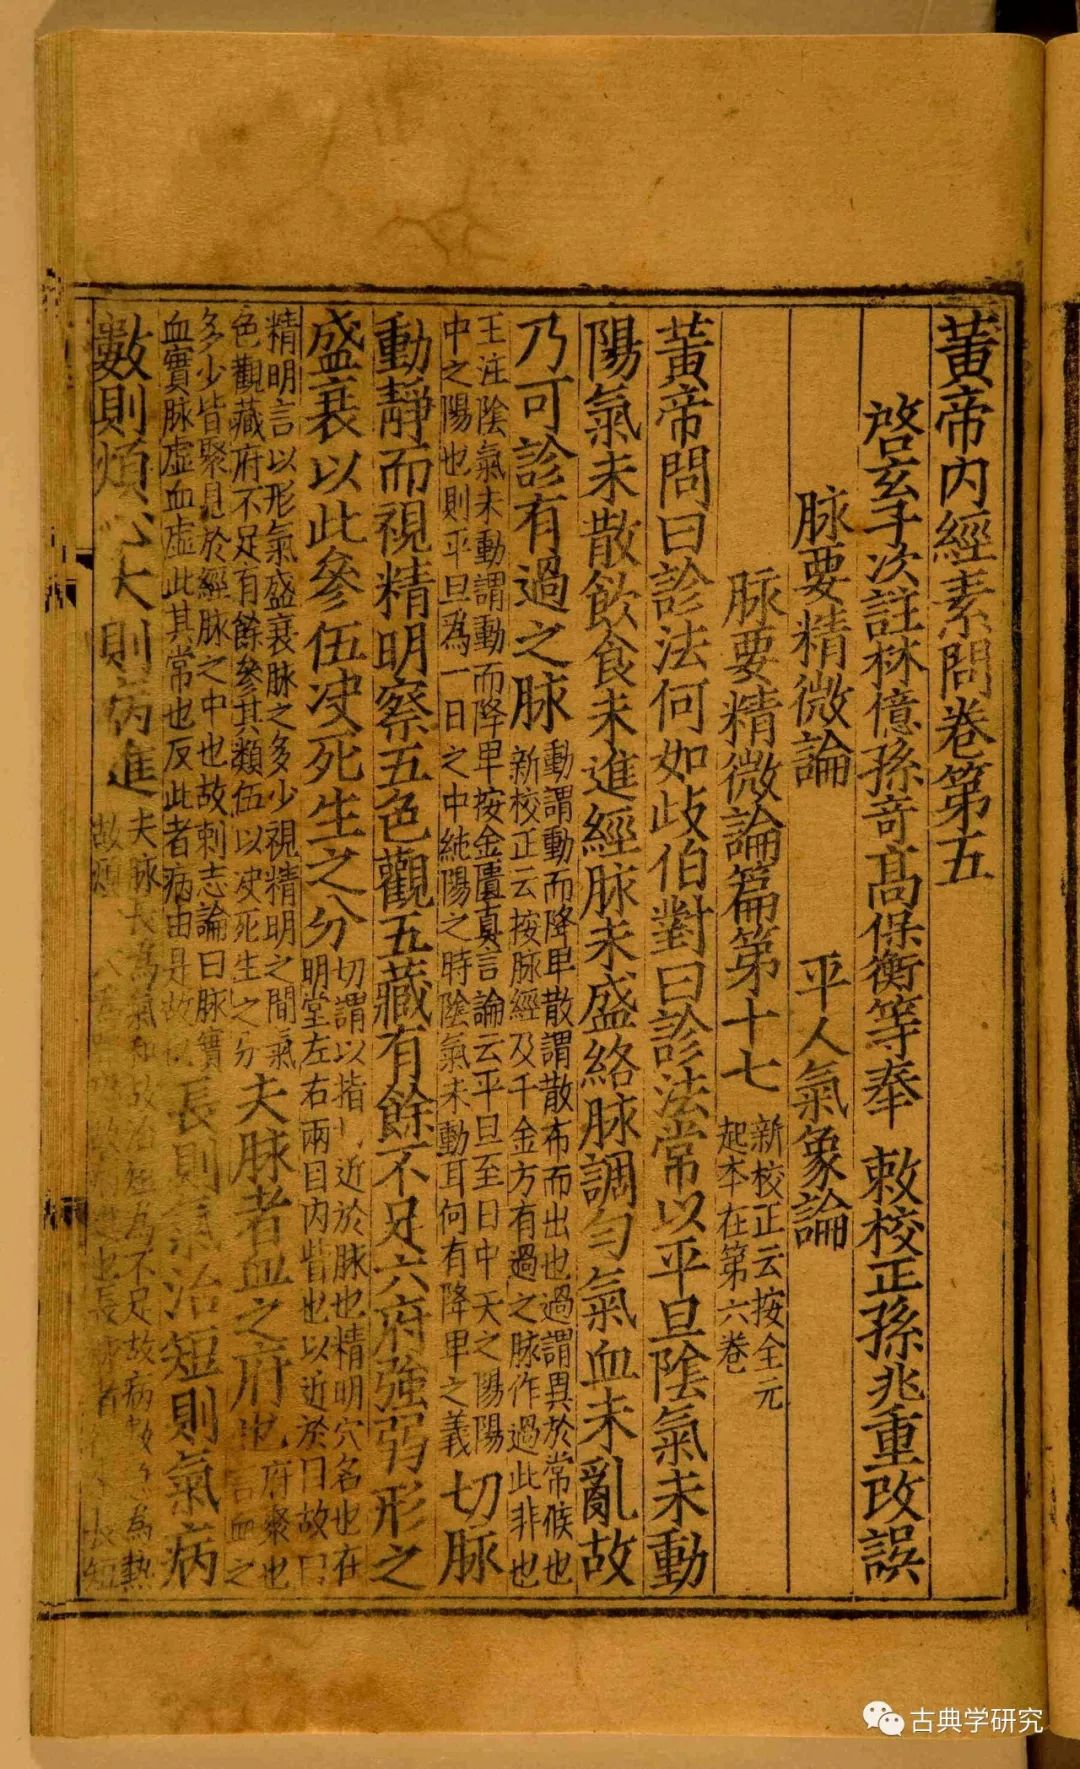 黃帝內經素問卷第五
啓玄子次註林億孫奇髙保衡等奉 敕校正孫兆重改誤
脉要精微論 平人氣象論
脉要精微論篇第十七
新校正云按全元
起本在第六卷
黃帝問曰診法何如歧伯對曰診法常以平旦陰氣未動
陽氣未散飲食未進經脉未盛絡脉調勻氣血未亂故
乃可診有過之脉
動謂動而降卑散謂散布而出也過謂異於常候也
新校正云按脉經及千金方有過之脉作過此非也
王注陰氣未動謂動而降卑按金匱真言論云平旦至日中天之陽陽
中之陽也則平旦為一日之中純陽之時陰氣未動耳何有降卑之義
切脉
動靜而視精明察五色觀五藏有餘不足六府強弱形之
盛衰以此參伍决死生之分
切謂以指 近於脉也精明穴名也在
明堂左右兩目内眥也以近於目故曰
精明言以形氣盛衰脉之多少視精明之間氣
色觀藏府不足有餘參其類伍以决死生之分
夫脉者血之府也
府聚也
言血之
多少皆聚見於經脉之中也故刺志論曰脉實
血實脉虛血虛此其常也反此者病由是故
長則氣治短則氣病
數則煩心大則病進
夫脉長為氣和故治短為不足故病數 為熱
故煩
長短
古典学研究